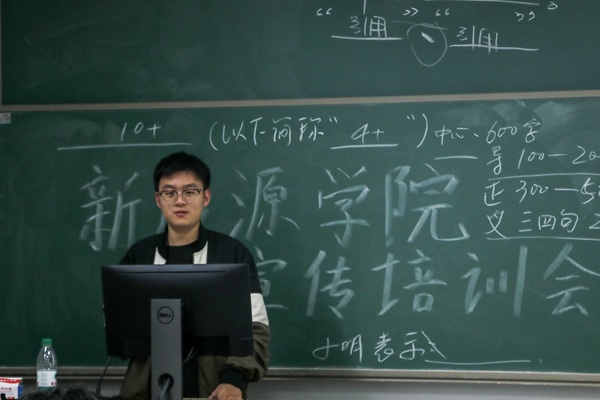 “ 引用 ” “ 引用 ”
10+ (以下简称“ 4+ ”) 中心：600字
导 100—20
正 300—50
义 三四句 2
新 源学院
宣传培训会
小明表示，
DELL